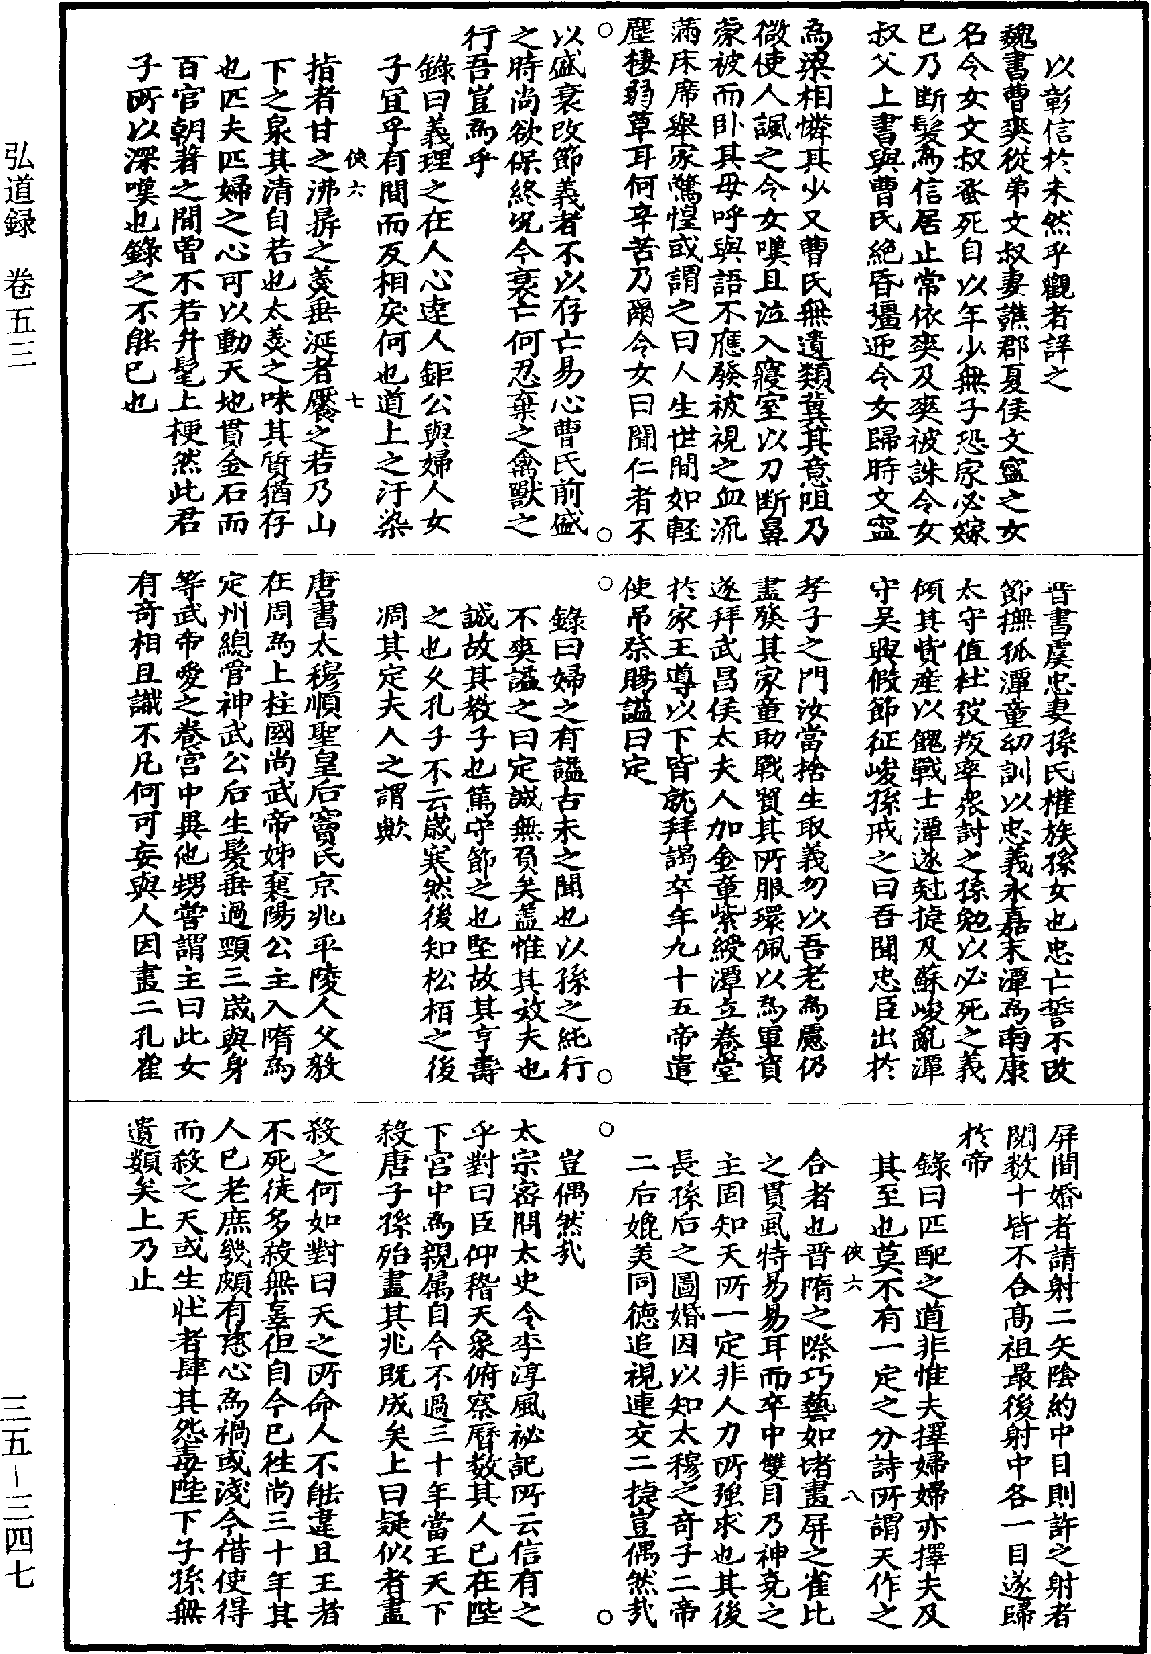 以彰信於未然乎觀者詳之
魏書曹爽從弟文叔妻譙郡夏侯文寧之女
名令女文叔蚤死自以年少無子恐家必嫁
已乃斷髮為信居止常依爽及爽被誅令女
叔父上書與曹氏絶昏彊迎令女歸時文寧
為梁相憐其少又曹氏無遺類冀其意阻乃
微使人諷之令女嘆且泣入寢室以刀斷鼻
蒙被而卧其母呼與語不應發被視之血流
滿床席舉家驚惶或謂之曰人生世間如輕
塵棲弱草耳何辛苦乃爾令女曰聞仁者不
○ ○
以盛衰改節義者不以存亡易心曹氏前盛
之時尚欲保終況今衰亡何忍棄之禽獸之
行吾豈為乎
錄曰義理之在人心逹人鉅公與婦人女
子宜乎有間而反相戾何也道上之汙染
俠六 七
指者甘之沸羹之羹垂涎者饜之若乃山
下之泉其清自若也太羹之味其質猶存
也匹夫匹婦之心可以動天地貫金石而
百官朝著之間曾不若弁髦上梗然此君
子所以深嘆也錄之不能已也
晉書虞忠妻孫氏權族孫女也忠亡誓不改
節撫孤潭童幼訓以忠義永嘉末潭為南康
太守值杜弢叛率衆討之孫勉以必死之義
傾其貲産以餽戰士潭遂尅捷及蘇峻亂潭
守吳興假節征峻孫戒之曰吾聞忠臣出於
孝子之門汝當捨生取義勿以吾老為慮仍
盡發其家童助戰貿其所服環佩以為軍資
遂拜武昌侯太夫人加金章紫綬潭立養堂
於家王導以下皆就拜謁卒年九十五帝遣
使弔祭賜謚曰定
○ ○
錄曰婦之有謚古未之聞也以孫之純行
不爽謚之曰定誠無負矣蓋惟其效夫也
誠故其教子也篤守節之也堅故其享壽
之也久孔子不云歲寒然後知松栢之後
凋其定夫人之謂歟
唐書太穆順聖皇后竇氏京兆平陵人父毅
在周為上柱國尚武帝姊襄陽公主入隋為
定州總管神武公后生髮垂過頸三歲與身
等武帝愛之養宮中異他甥嘗謂主曰此女
有奇相且識不凡何可妄與人因畫二孔雀
屏間婚者請射二矢陰約中目則許之射者
閱数十皆不合高祖最後射中各一目遂歸
於帝
錄曰匹配之道非惟夫擇婦婦亦擇夫及
其至也莫不有一定之分詩所謂天作之
俠六 八
合者也晋隋之際巧藝如堵畫屏之雀比
之貫虱特易易耳而卒中雙目乃神堯之
主固知天所一定非人力所強求也其後
長孫后之圖婚因以知太穆之奇子二帝
二后媲美同德追視連交二捷豈偶然㢤
○ ○
豈偶然㢤
太宗密問太史令李淳風祕記所云信有之
乎對曰臣仰稽天象俯察曆數其人已在陛
下宮中為親属自今不過三十年當王天下
殺唐子孫殆盡其兆既成矣上曰疑似者盡
殺之何如對曰天之所命人不能違且王者
不死徒多殺無辜但自今已徃尚三十年其
人已老庶幾頗有慈心為禍或淺今借使得
而殺之天或生壯者肆其怨毒陛下子孫無
遺類矣上乃止
弘道録 卷五三
三五－三四七